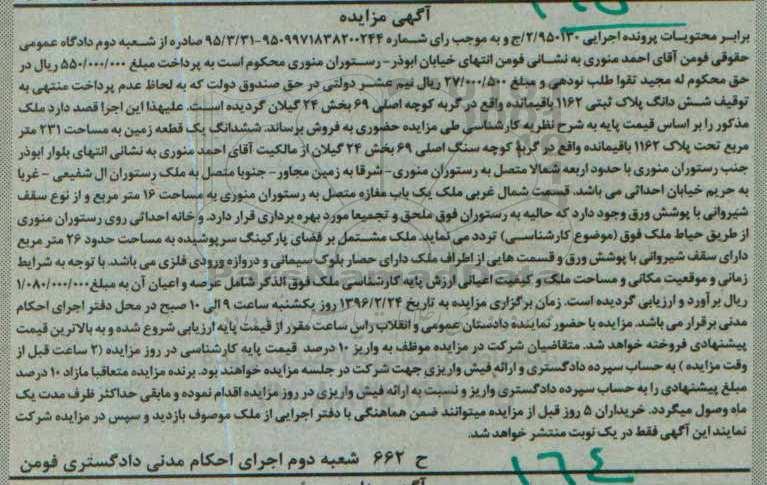 آگهی مزایده
برابر محتویات پرونده اجرایی ۲/۹۵۰۱۳۰/ج و به موجب رای شماره ۹۵۰۹۹۷۱۸۳۸۲۰۰۲۴۴-۹۵/۳/۳۱ صادره از شعبه دوم دادگاه عمومی
حقوقی فومن آقای احمد منوری به نشانی فومن انتهای خیابان ابوذر- رستوران منوری محکوم است به پرداخت مبلغ ۵۵۰/۰۰۰/۰۰۰ ریال در
حق محکوم له مجید تقوا طلب نودهی و مبلغ ۲۷/۰۰۰/۵۰۰ ریال نیم عشر دولتی در حق صندوق دولت که به لحاظ عدم پرداخت منتهی به
توقیف شش دانگ پلاک ثبتی ۱۱۶۲ باقیمانده واقع در گربه کوچه اصلی ۶۹ بخش ۲۴ گیلان گردیده است. علیهذا این اجرا قصد دارد ملک
مذکور را بر اساس قیمت پایه به شرح نظریه کارشناسی طی مزایده حضوری به فروش برساند. ششدانگ یک قطعه زمین به مساحت ۲۳۱ متر
مربع تحت پلاک ۱۱۶۲ باقیمانده واقع در گربه کوچه سنگ اصلی ۶۹ بخش ۲۴ گیلان از مالکیت آقای احمد منوری به نشانی انتهای بلوار ابوذر
جنب رستوران منوری با حدود اربعه شمالا متصل به رستوران منوری- شرقا به زمین مجاور- جنوبا متصل به ملک رستوران ال شفیعی - غربا
به حریم خیابان احداثی می باشد. قسمت شمال غربی ملک یک باب مغازه متصل به رستوران منوری به مساحت ۱۶ متر مربع و از نوع سقف
شیروانی با پوشش ورق وجود دارد که حالیه به رستوران فوق ملحق و تجمیعا مورد بهره برداری قرار دارد. و خانه احداثی روی رستوران منوری
از طریق حیاط ملک فوق (موضوع کارشناسی) تردد می نماید. ملک مشتمل بر فضای پارکینگ سرپوشیده به مساحت حدود ۲۶ متر مربع
دارای سقف شیروانی با پوشش ورق و قسمت هایی از اطراف ملک دارای حصار بلوک سیمانی و دروازه ورودی فلزی می باشد. با توجه به شرایط
زمانی و موقعیت مکانی و مساحت ملک و کیفیت اعیانی ارزش پایه کارشناسی ملک فوق الذکر شامل عرصه و اعیان آن به مبلغ ۱/۰۸۰/۰۰۰/۰۰۰
ریال برآورد و ارزیابی گردیده است. زمان برگزاری مزایده به تاریخ ۱۳۹۶/۲/۲۴ روز یکشنبه ساعت ۹ الی ۱۰ صبح در محل دفتر اجرای احکام
مدنی برقرار می باشد. مزایده با حضور نماینده دادستان عمومی و انقلاب راس ساعت مقرر از قیمت پایه ارزیابی شروع شده و به بالاترین قیمت
پیشنهادی فروخته خواهد شد. متقاضیان شرکت در مزایده موظف به واریز ۱۰ درصد قیمت پایه کارشناسی در روز مزایده (۲ ساعت قبل از
وقت مزایده ) به حساب سپرده دادگستری و ارائه فیش واریزی جهت شرکت در جلسه مزایده خواهند بود. برنده مزایده متعاقبا مازاد ۱۰ درصد
مبلغ پیشنهادی را به حساب سپرده دادگستری واریز و نسبت به ارائه فیش واریزی در روز مزایده اقدام نموده و مابقی حداکثر ظرف مدت یک
ماه وصول میگردد. خریداران ۵ روز قبل از مزایده میتوانند ضمن هماهنگی با دفتر اجرایی از ملک موصوف بازدید و سپس در مزایده شرکت
نمایند این آگهی فقط در یک نوبت منتشر خواهد شد.
ح ۶۶۲ شعبه دوم اجرای احکام مدنی دادگستری فومن
۱۶۴